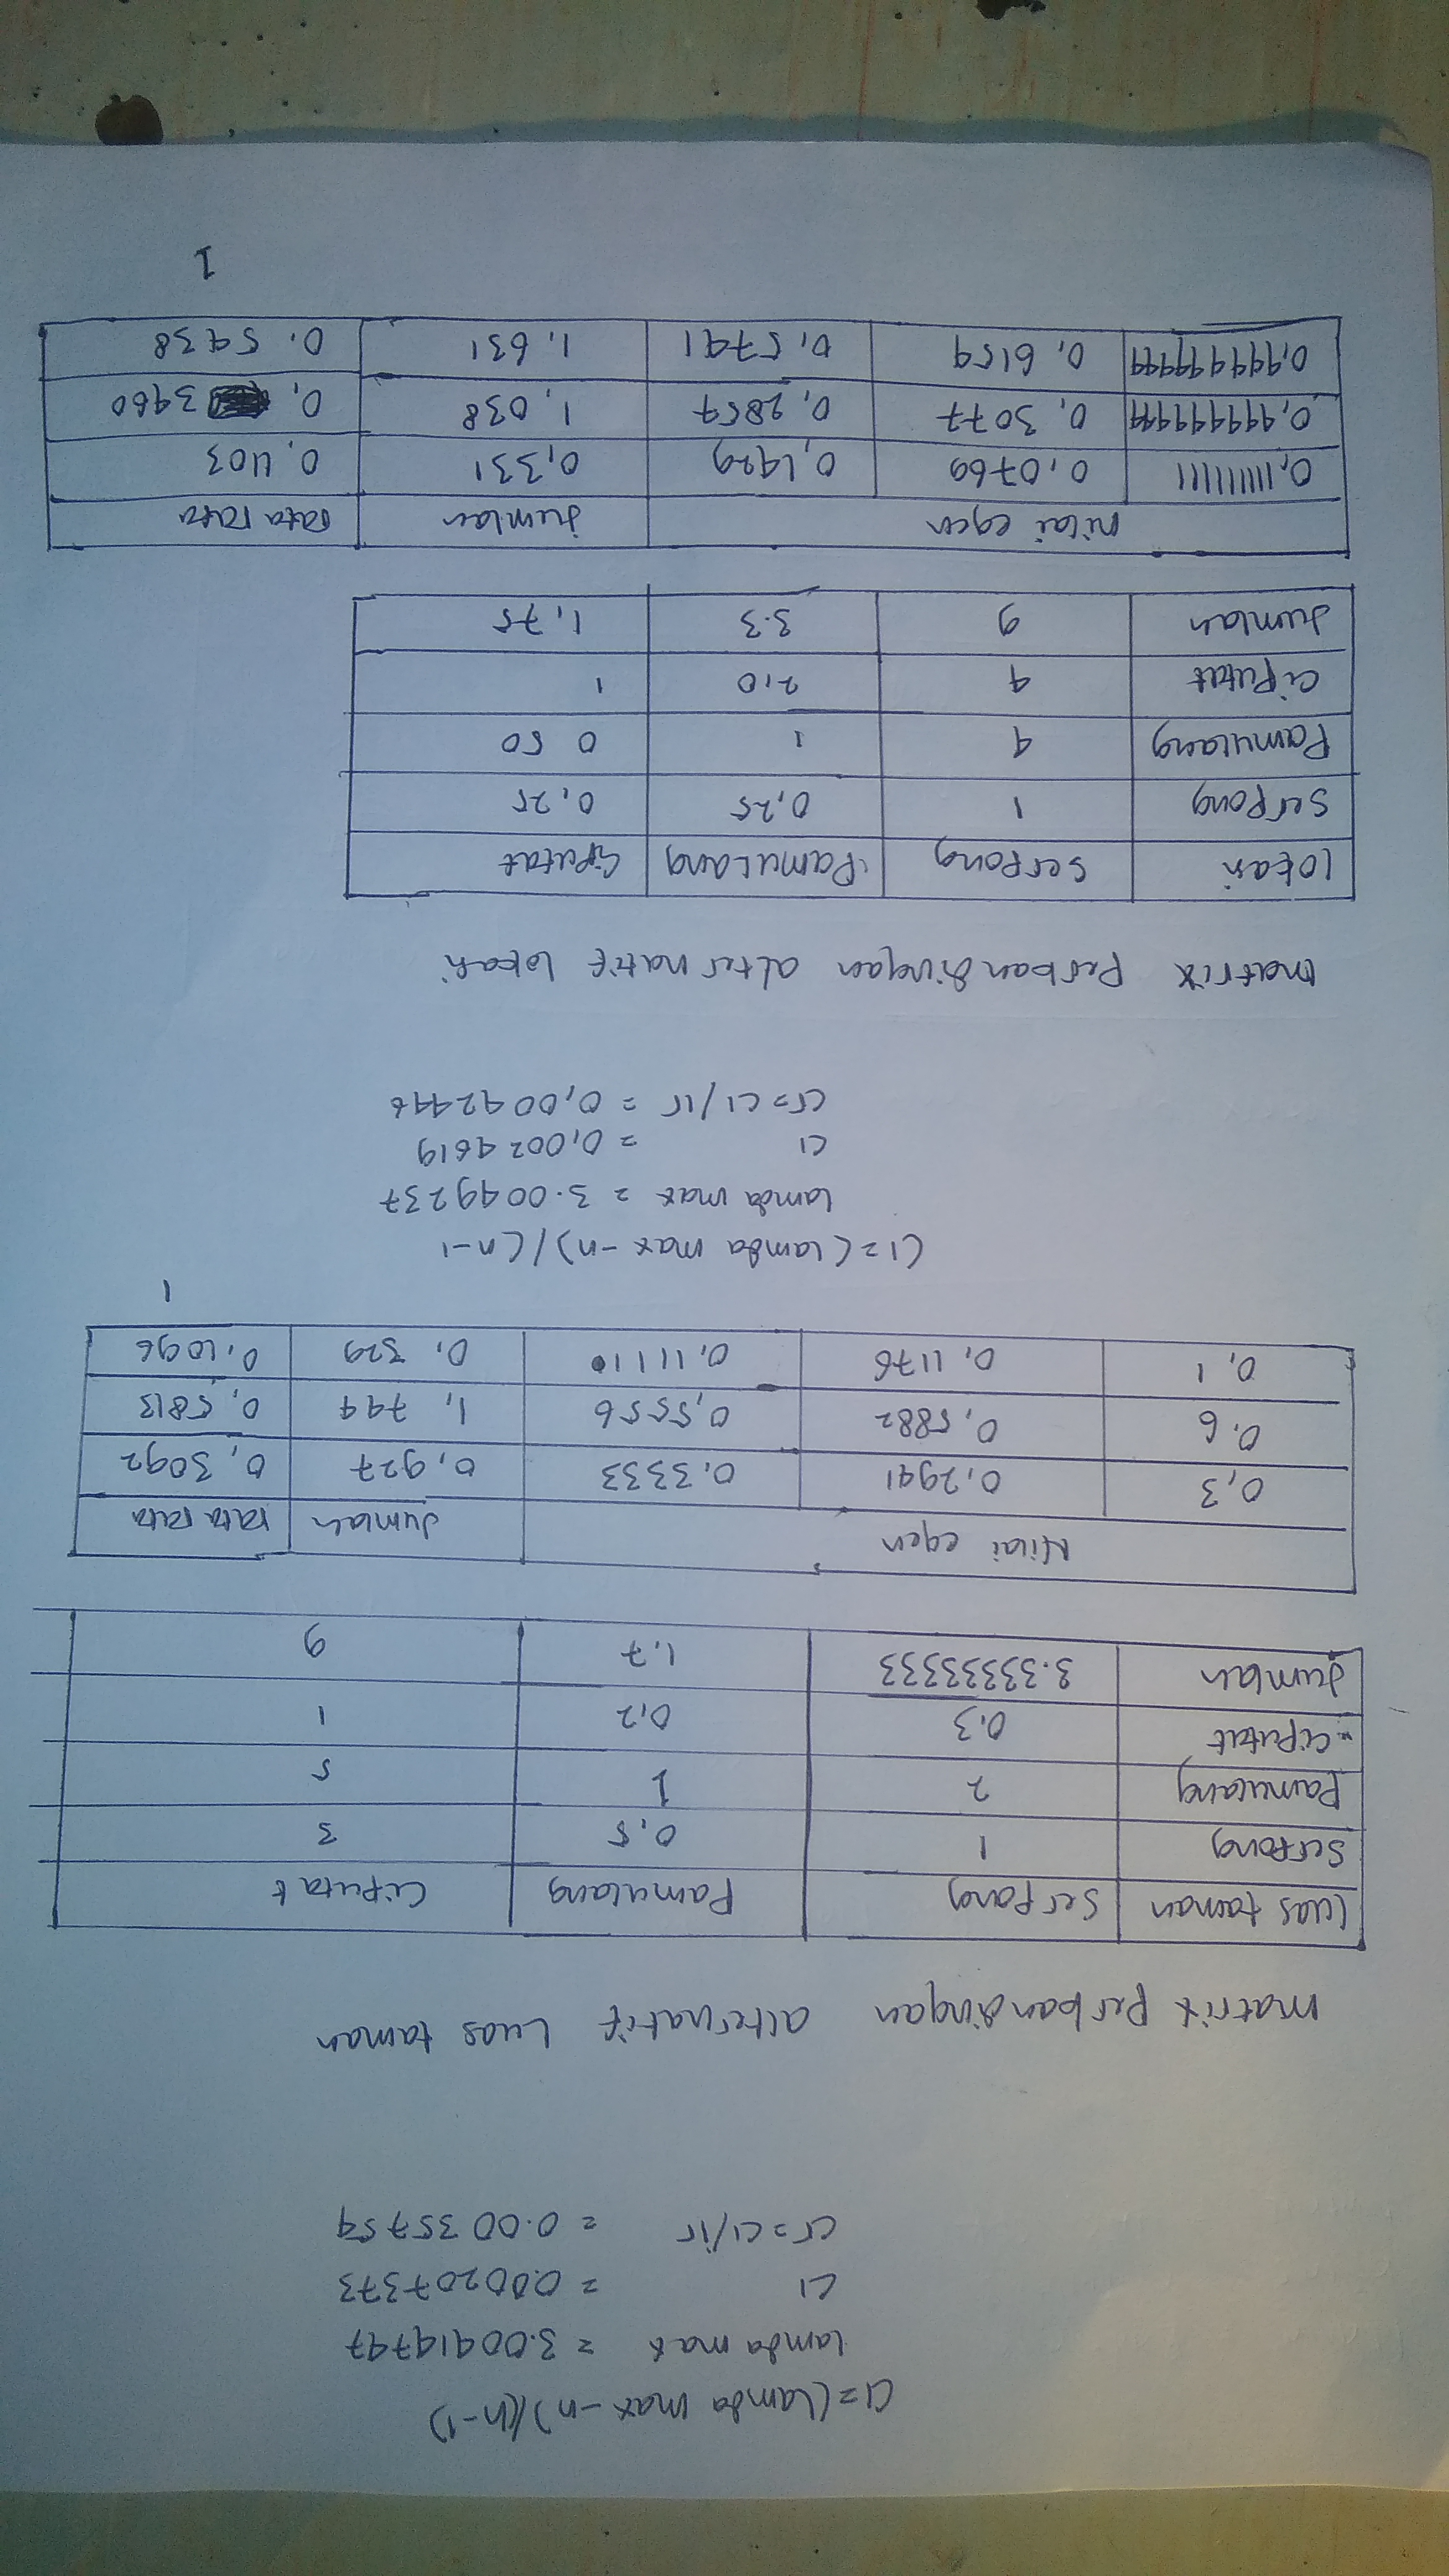 CI = (lamda max - n) / (n-1)
lamda max = 3.00414747
CI = 0.00207373
cr = CI/ir = 0.0035754
matrix Perbandingan alternatif Luas taman
Luas taman Serpong Pamulang Ciputat
Serpong 1 0,5 3
Pamulang 2 1 5
Ciputat 0,3 0,2 1
Jumlah 3.3333333 1,7 9
Nilai egen Jumlah rata rata
0,3 0,2941 0,3333 0,927 0,3092
0,6 0,5882 0,5556 1,744 0,5813
0,1 0,1176 0,11111 0,329 0,1096
1
CI = (lamda max - n) / (n-1
lamda max = 3.0049237
CI = 0,0024619
cr = CI/ir = 0,0042446
matrix Perbandingan alternatif lokasi
lokasi Serpong Pamulang Ciputat
Serpong 1 0,25 0,25
Pamulang 4 1 0 50
Ciputat 4 2,0 1
Jumlah 9 3.3 1,75
nilai egen jumlah rata rata
0,11111111 0,0769 0,1429 0,331 0,1103
0,44444444 0,3077 0,2857 1,038 0,3460
0,44444444 0,6154 0,5741 1,631 0,5438
1